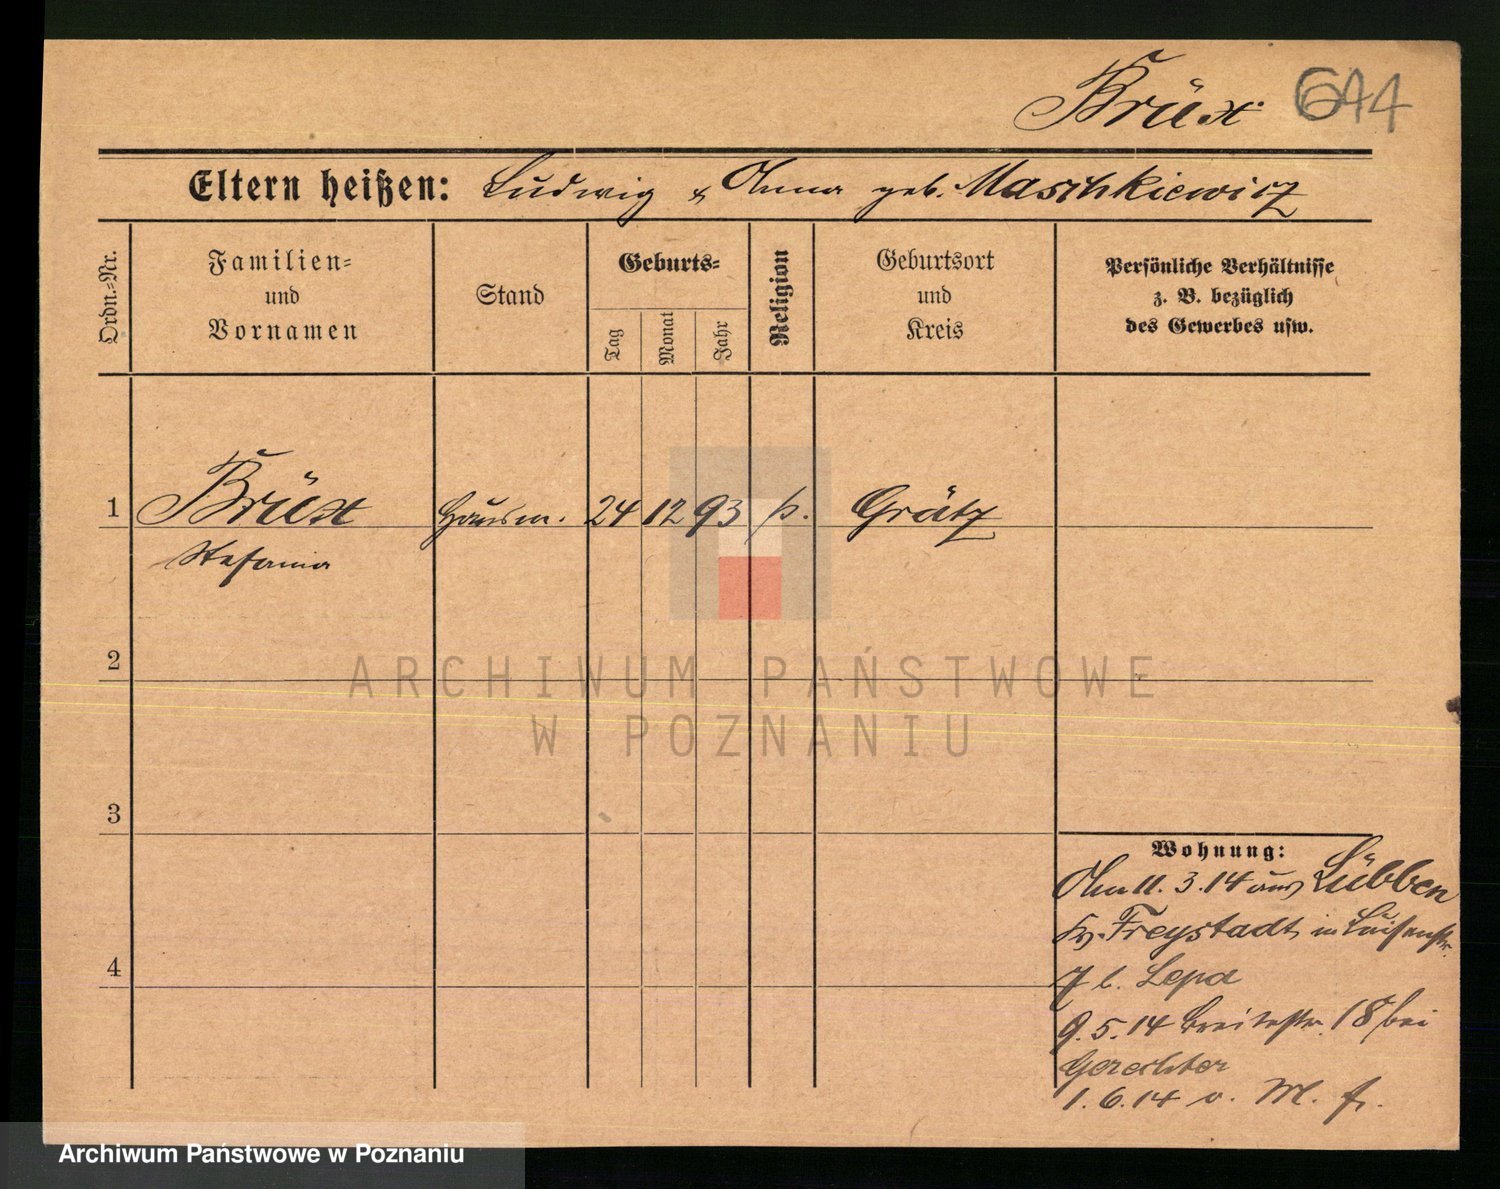 Brüx 644
Eltern heißen: Ludwig & Anna geb. Maschkiewicz
Ordn.-Nr.
Familien-
und
Vornamen
Stand
Geburts-
Tag
Monat
Jahr
Religion
Geburtsort
und
Kreis
Persönliche Verhältnisse
z. B. bezüglich
des Gewerbes usw.
1 Brüx Hausm. 24 12 93 k. Grätz
Stefania
2
3
4
Wohnung:
Am 11. 3. 14 aus Lübben
Kr. Freystadt, in Luisenstr.
7 b. Lepa
9. 5. 14 Breitestr. 18 bei
Gerechter
1. 6. 14 v. M. f.
ARCHIWUM PAŃSTWOWE
W POZNANIU
Archiwum Państwowe w Poznaniu